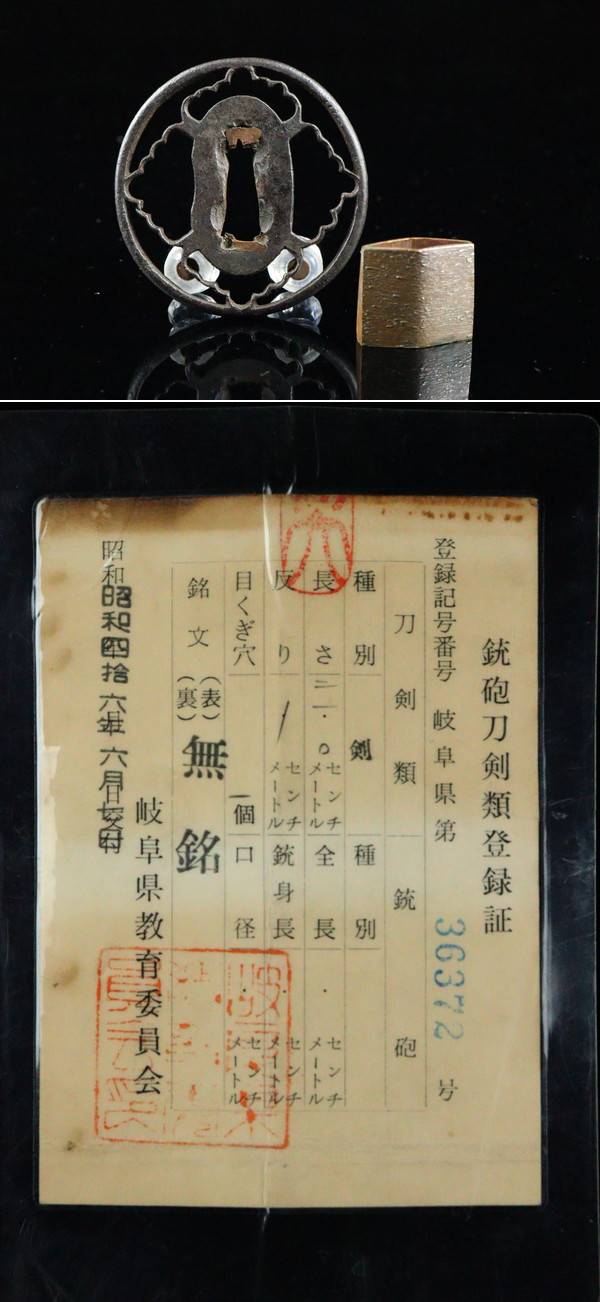 銃砲刀剣類登録証
登録記号番号 岐阜県第 36372 号
刀剣類 銃砲
種別 剣 種別
長さ 二一.〇 センチメートル 全長 . センチメートル
反り センチメートル 銃身長 . センチメートル
目くぎ穴 一個 口径 . センチメートル
銘文 (表) (裏) 無銘
岐阜県教育委員会
昭和 昭和四拾六年六月